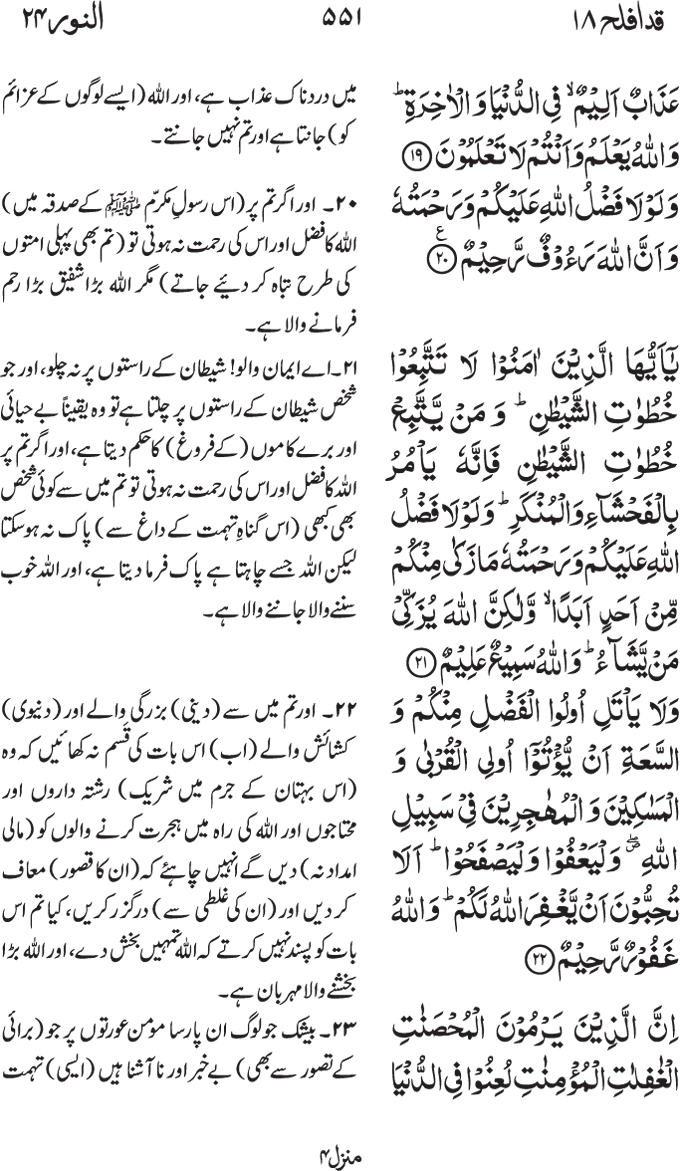 قد افلح ۱۸
۵۵۱
النور ۲۴
عَذَابٌ اَلِیْمٌ ۙ فِی الدُّنْیَا وَ الْاٰخِرَةِ ؕ
وَ اللّٰهُ یَعْلَمُ وَ اَنْتُمْ لَا تَعْلَمُوْنَ ﴿۱۹﴾
وَ لَوْ لَا فَضْلُ اللّٰهِ عَلَیْكُمْ وَ رَحْمَتُهٗ
وَ اَنَّ اللّٰهَ رَءُوْفٌ رَّحِیْمٌ ﴿۲۰﴾ ع
یٰۤاَیُّهَا الَّذِیْنَ اٰمَنُوْا لَا تَتَّبِعُوْا
خُطُوٰتِ الشَّیْطٰنِ ؕ وَ مَنْ یَّتَّبِعْ
خُطُوٰتِ الشَّیْطٰنِ فَاِنَّهٗ یَاْمُرُ
بِالْفَحْشَآءِ وَ الْمُنْكَرِ ؕ وَ لَوْ لَا فَضْلُ
اللّٰهِ عَلَیْكُمْ وَ رَحْمَتُهٗ مَا زَكٰی مِنْكُمْ
مِّنْ اَحَدٍ اَبَدًا ۙ وَّ لٰكِنَّ اللّٰهَ یُزَكِّیْ
مَنْ یَّشَآءُ ؕ وَ اللّٰهُ سَمِیْعٌ عَلِیْمٌ ﴿۲۱﴾
وَ لَا یَاْتَلِ اُولُوا الْفَضْلِ مِنْكُمْ وَ
السَّعَةِ اَنْ یُّؤْتُوْۤا اُولِی الْقُرْبٰی وَ
الْمَسٰكِیْنَ وَ الْمُهٰجِرِیْنَ فِیْ سَبِیْلِ
اللّٰهِ ۪ۖ وَ لْیَعْفُوْا وَ لْیَصْفَحُوْا ؕ اَلَا
تُحِبُّوْنَ اَنْ یَّغْفِرَ اللّٰهُ لَكُمْ ؕ وَ اللّٰهُ
غَفُوْرٌ رَّحِیْمٌ ﴿۲۲﴾
اِنَّ الَّذِیْنَ یَرْمُوْنَ الْمُحْصَنٰتِ
الْغٰفِلٰتِ الْمُؤْمِنٰتِ لُعِنُوْا فِی الدُّنْیَا
میں دردناک عذاب ہے، اور اللہ (ایسے لوگوں کے عزائم
کو) جانتا ہے اور تم نہیں جانتے۔
۲۰۔ اور اگر تم پر (اس رسولِ مکرّم ﷺ کے صدقہ میں)
اللہ کا فضل اور اس کی رحمت نہ ہوتی تو (تم بھی پہلی امتوں
کی طرح تباہ کر دئیے جاتے) مگر اللہ بڑا شفیق بڑا رحم
فرمانے والا ہے۔
۲۱۔ اے ایمان والو! شیطان کے راستوں پر نہ چلو، اور جو
شخص شیطان کے راستوں پر چلتا ہے تو وہ یقیناً بے حیائی
اور برے کاموں (کے فروغ) کا حکم دیتا ہے، اور اگر تم پر
اللہ کا فضل اور اس کی رحمت نہ ہوتی تو تم میں سے کوئی شخص
بھی کبھی (اس گناہِ تہمت کے داغ سے) پاک نہ ہو سکتا
لیکن اللہ جسے چاہتا ہے پاک فرما دیتا ہے، اور اللہ خوب
سننے والا جاننے والا ہے۔
۲۲۔ اور تم میں سے (دینی) بزرگی والے اور (دنیوی)
کشائش والے (اب) اس بات کی قسم نہ کھائیں کہ وہ
(اس بہتان کے جرم میں شریک) رشتہ داروں اور
محتاجوں اور اللہ کی راہ میں ہجرت کرنے والوں کو (مالی
امداد نہ) دیں گے انہیں چاہئے کہ (ان کا قصور) معاف
کر دیں اور (ان کی غلطی سے) درگزر کریں، کیا تم اس
بات کو پسند نہیں کرتے کہ اللہ تمہیں بخش دے، اور اللہ بڑا
بخشنے والا مہربان ہے۔
۲۳۔ بیشک جو لوگ ان پارسا مومن عورتوں پر جو (برائی
کے تصور سے بھی) بے خبر اور ناآشنا ہیں (ایسی) تہمت
منزل ۴